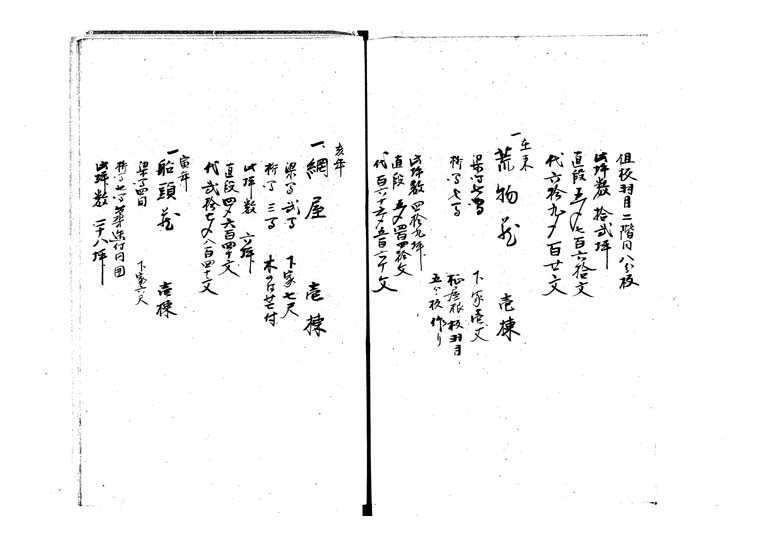 但板羽目二階同八分板
此坪数 拾弐坪
直段 五〆七百六拾文
代六拾九〆百廿文
一 在来 荒物蔵 壱棟
梁 下家壱丈
桁 七間 板羽目
五分板作り
此坪数 四拾九坪
直段 五〆四百四拾文
代 百六十六〆五百六十文
亥年
一 網屋 壱棟
梁間 弐間 下家七尺
桁間 三間
此坪数 六坪
直段四〆六百四十文
代弐拾七〆八百四十文
寅年
一 船頭蔵 壱棟
梁間四間 下家六尺
桁間七間
此坪数 二十八坪